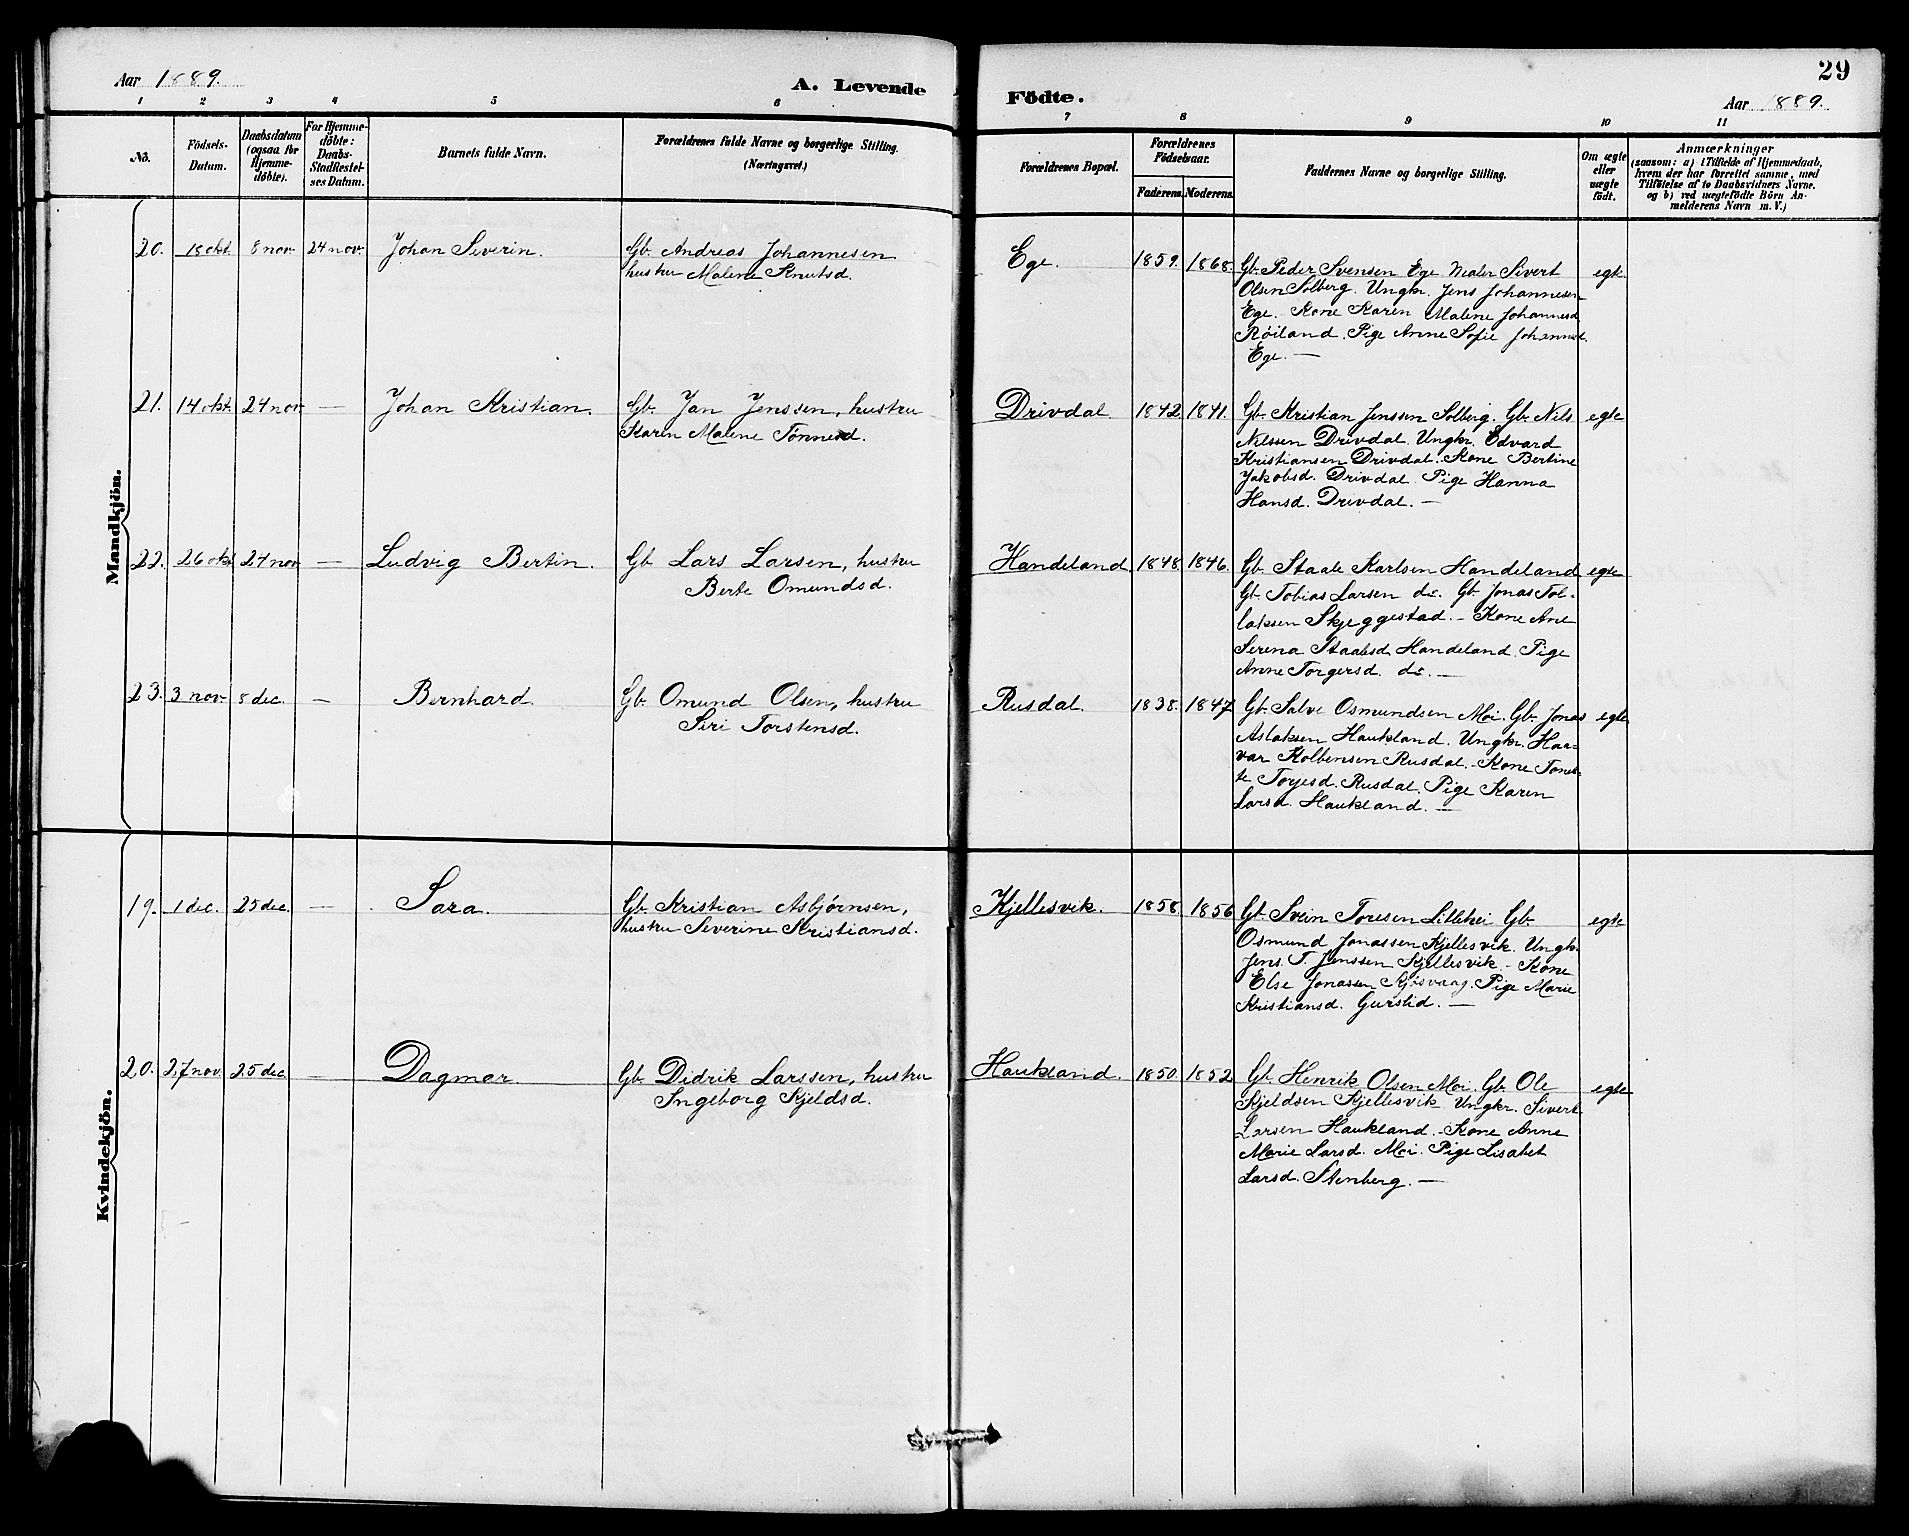 Aar 1889.
A. Levende
Födte.
29
Aar 1889.
1 2 3 4 5 6 7 8 9 10 11
No.
Födsels-Datum.
Daabsdatum (ogsaa for Hjemme-døbte).
For Hjemme-døbte: Daabs-Stadfæstel-ses Datum.
Barnets fulde Navn.
Forældrenes fulde Navne og borgerlige Stilling.
(Næringsvei.)
Forældrenes Bopæl.
Forældrenes Fødselsaar.
Faderens. Moderens.
Faddernes Navne og borgerlige Stilling.
Om ægte eller uægte födt.
Anmærkninger
(saasom: a) i Tilfælde af Hjemmedaab,
hvem der har forrettet samme, med
Tilföielse af to Daabsvidners Navne.
og b) ved uægtefödte Börn An-
melderens Navn m. V.)
Mandkjön.
20. 18 okt. 8 nov. 24 nov. Johan Severin. Gb. Andreas Johannesen
hustru Malene Knutsd.
Ege. 1859. 1868. Gb. Peder Svensen Ege. Maler Sivert egte
Olsen Solberg. Ungkr. Jens Johannesen
Ege. Kone Karen Malene Johannesd.
Røiland. Pige Anne Sofie Johannesd.
Ege. —
21. 14 okt. 24 nov. — Johan Kristian. Gb. Jan Jenssen, hustru
Karen Malene Tønnesd.
Drivdal 1842. 1841. Gb. Kristian Jenssen Solberg. Gb. Nils egte
Nilssen Drivdal. Ungkr. Edvard
Kristiansen Drivdal. Kone Bertine
Jakobsd. Drivdal. Pige Hanna
Hansd. Drivdal. —
22. 26 okt. 24 nov. — Ludvig Bertin. Gb. Lars Larsen, hustru
Berte Omundsd.
Handeland. 1848. 1846. Gb. Staale Karlsen Handeland egte
Gb. Tobias Larsen do. Gb. Jonas Tol-
laksen Skjeggestad. - Kone Ane
Serena Staalesd. Handeland. Pige
Anne Torgersd. do. —
23. 3 nov. 8 dec. — Bernhard. Gb. Omund Olsen, hustru
Siri Torstensd.
Rusdal. 1838. 1847. Gb. Salve Osmundsen Moi. Gb. Jonas egte
Aslaksen Haukland. Ungkr. Haa-
var Kolbensen Rusdal. - Kone Tonet-
te Torjesd. Rusdal. Pige Karen
Larsd. Haukland. —
Kvindekjön.
19. 1 dec. 25 dec. — Sara. Gb. Kristian Asbjørnsen,
hustru Severine Kristiansd.
Kjellesvik. 1858. 1856. Gb. Svein Toresen Lillehei Gb. egte
Osmund Jonassen Kjellesvik. Ungkr.
Jens T. Jenssen Kjellesvik. - Kone
Else Jonassen Pige Marie
Kristiansd. Gurslid. —
20. 27 nov. 25 dec. — Dagmar. Gb. Didrik Larssen, hustru
Ingeborg Kjeldsd.
Haukland. 1850. 1852 Gb. Henrik Olsen Moi. Gb. Ole egte
Kjeldsen Kjellesvik. Ungkr. Sivert
Larsen Haukland. - Kone Anne
Marie Larsd. Moi. Pige Lisabet
Larsd. Stenberg. —